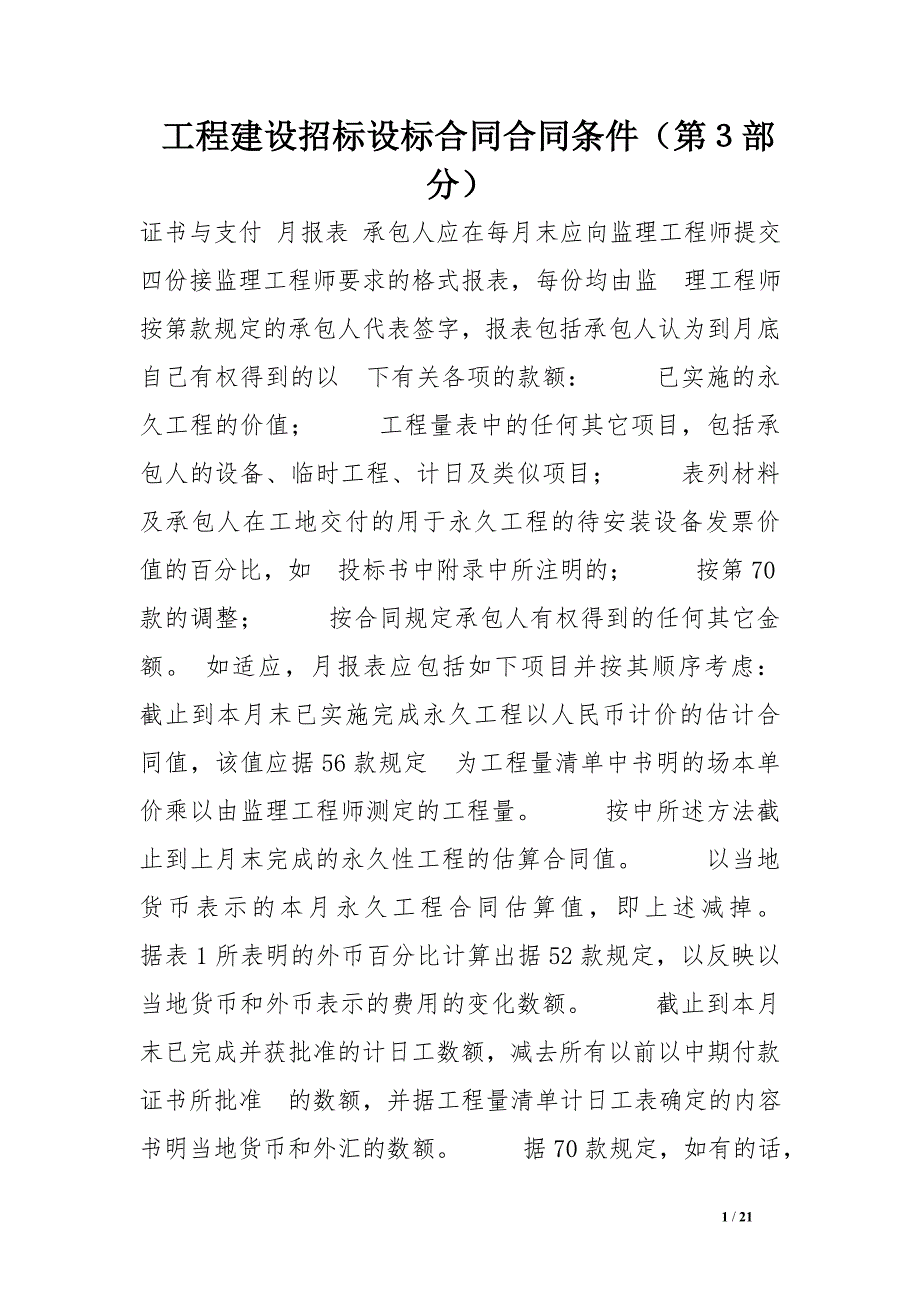 工程建设招标设标合同合同条件（第3部
分）
证书与支付 月报表 承包人应在每月末应向监理工程师提交
四份接监理工程师要求的格式报表，每份均由监 理工程师
按第款规定的承包人代表签字，报表包括承包人认为到月底
自己有权得到的以 下有关各项的款额： 已实施的永
久工程的价值； 工程量表中的任何其它项目，包括承
包人的设备、临时工程、计日及类似项目； 表列材料
及承包人在工地交付的用于永久工程的待安装设备发票价
值的百分比，如 投标书中附录中所注明的； 按第70
款的调整； 按合同规定承包人有权得到的任何其它金
额。 如适应，月报表应包括如下项目并按其顺序考虑：
截止到本月末已实施完成永久工程以人民币计价的估计合
同值，该值应据56款规定 为工程量清单中书明的场本单
价乘以由监理工程师测定的工程量。 按中所述方法截
止到上月末完成的永久性工程的估算合同值。 以当地
货币表示的本月永久工程合同估算值，即上述减掉。
据表1所表明的外币百分比计算出据52款规定，以反映以
当地货币和外币表示的费用的变化数额。 截止到本月
末已完成并获批准的计日工数额，减去所有以前以中期付款
证书所批准 的数额，并据工程量清单计日工表确定的内容
书明当地货币和外汇的数额。 据70款规定，如有的话，
1 / 21